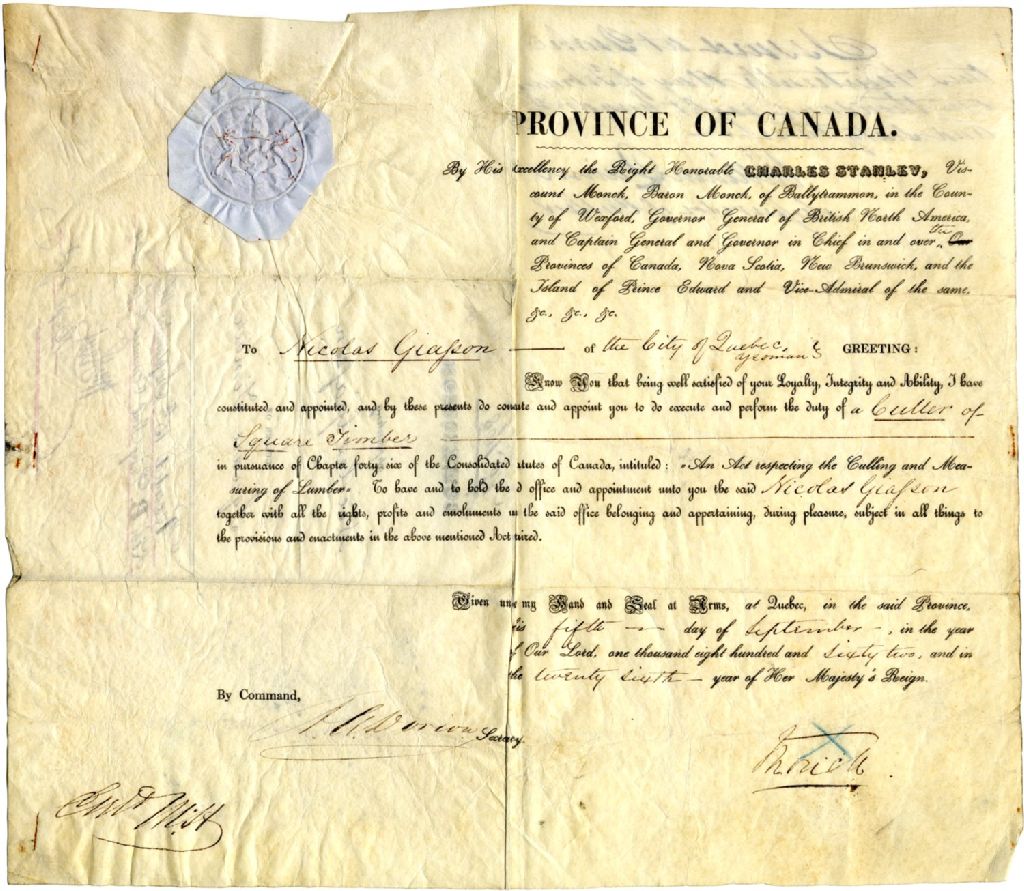 PROVINCE OF CANADA.
By His Excellency the Right Honorable CHARLES STANLEY, Vis-
count Monck, Baron Monck, of Ballytrammon, in the Coun-
ty of Wexford, Governor General of British North America,
and Captain General and Governor in Chief in and over the Our
Provinces of Canada, Nova Scotia, New Brunswick, and the
Island of Prince Edward and Vice-Admiral of the same.
&c., &c., &c.
To Nicolas Giasson of the City of Quebec, Yeoman GREETING:
Know You that being well satisfied of your Loyalty, Integrity and Ability, I have
constituted and appointed, and by these presents do constitute and appoint you to do execute and perform the duty of a Culler of
Square Timber
in pursuance of Chapter forty-six of the Consolidated tutes of Canada, intituled: «An Act respecting the Culling and Mea-
suring of Lumber» To have and to hold the d office and appointment unto you the said Nicolas Giasson
together with all the rights, profits and emoluments un the said office belonging and appertaining, during pleasure, subject in all things to
the provisions and enactments in the above mentioned Act uired.
Given under my Hand and Seal at Arms, at Quebec, in the said Province,
is fifth day of September, in the year
f Our Lord, one thousand eight hundred and sixty two, and in
the twenty sixth year of Her Majesty's Reign.
By Command,
Secretary.
Monck